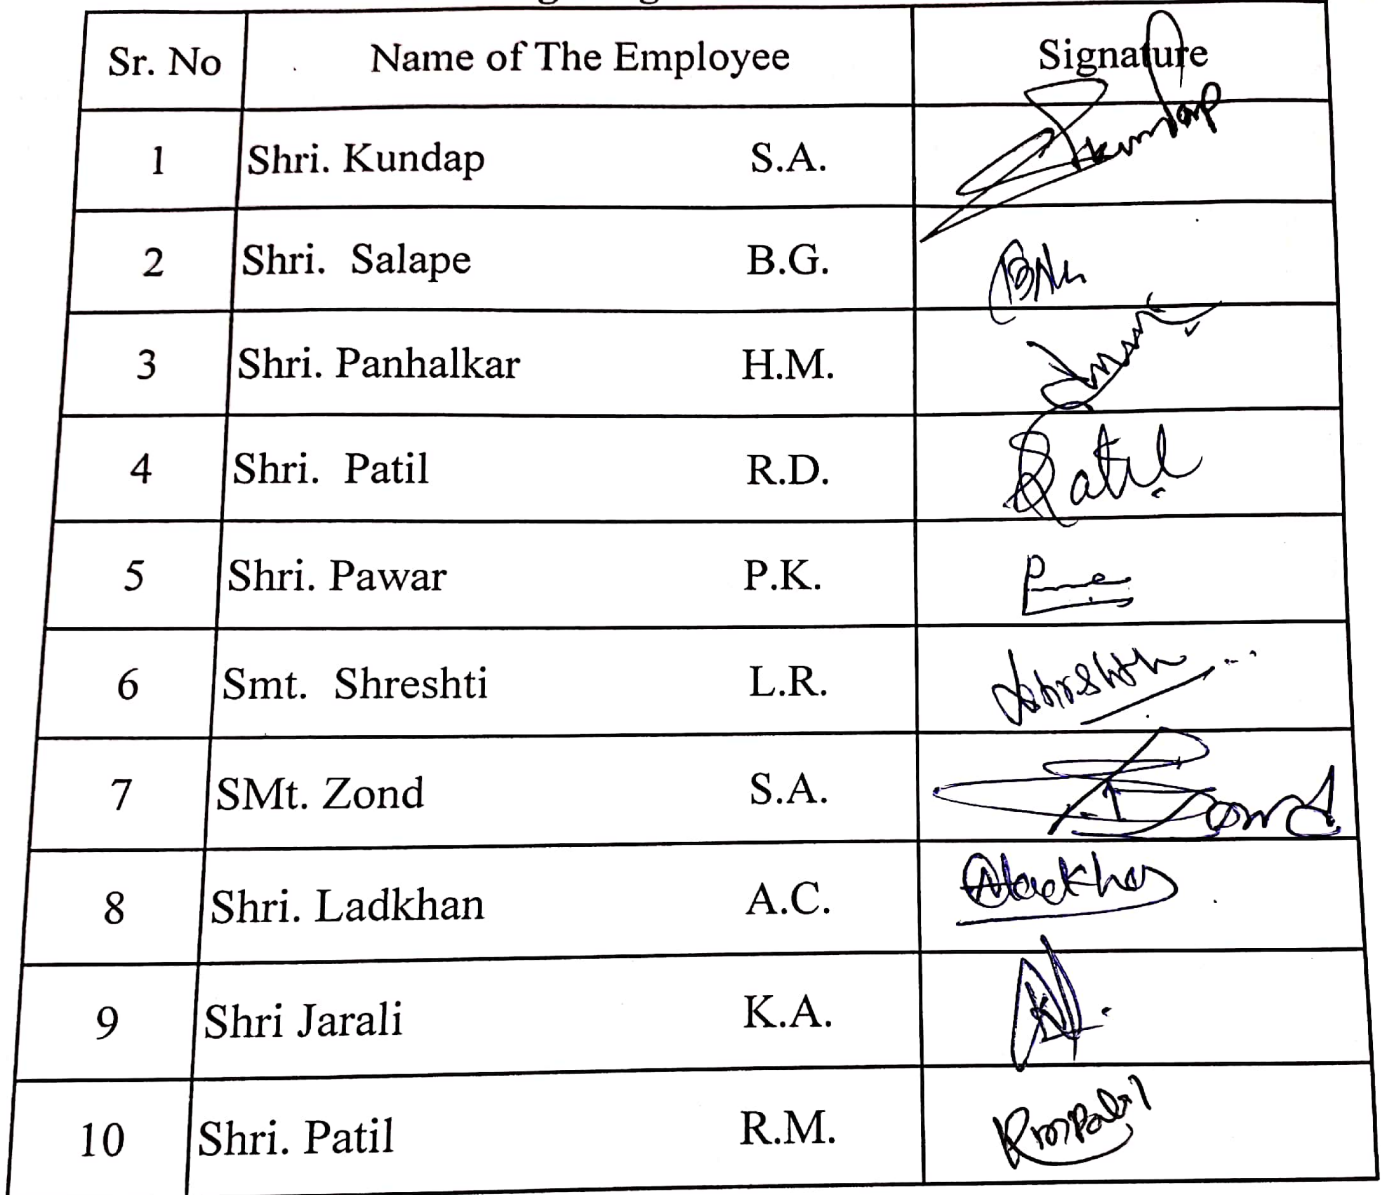 Sr. No Name of The Employee Signature
1 Shri. Kundap S.A. Skundap
2 Shri. Salape B.G.
3 Shri. Panhalkar H.M.
4 Shri. Patil R.D. Patil
5 Shri. Pawar P.K.
6 Smt. Shreshti L.R.
7 SMt. Zond S.A.
8 Shri. Ladkhan A.C.
9 Shri Jarali K.A.
10 Shri. Patil R.M. RMPatil